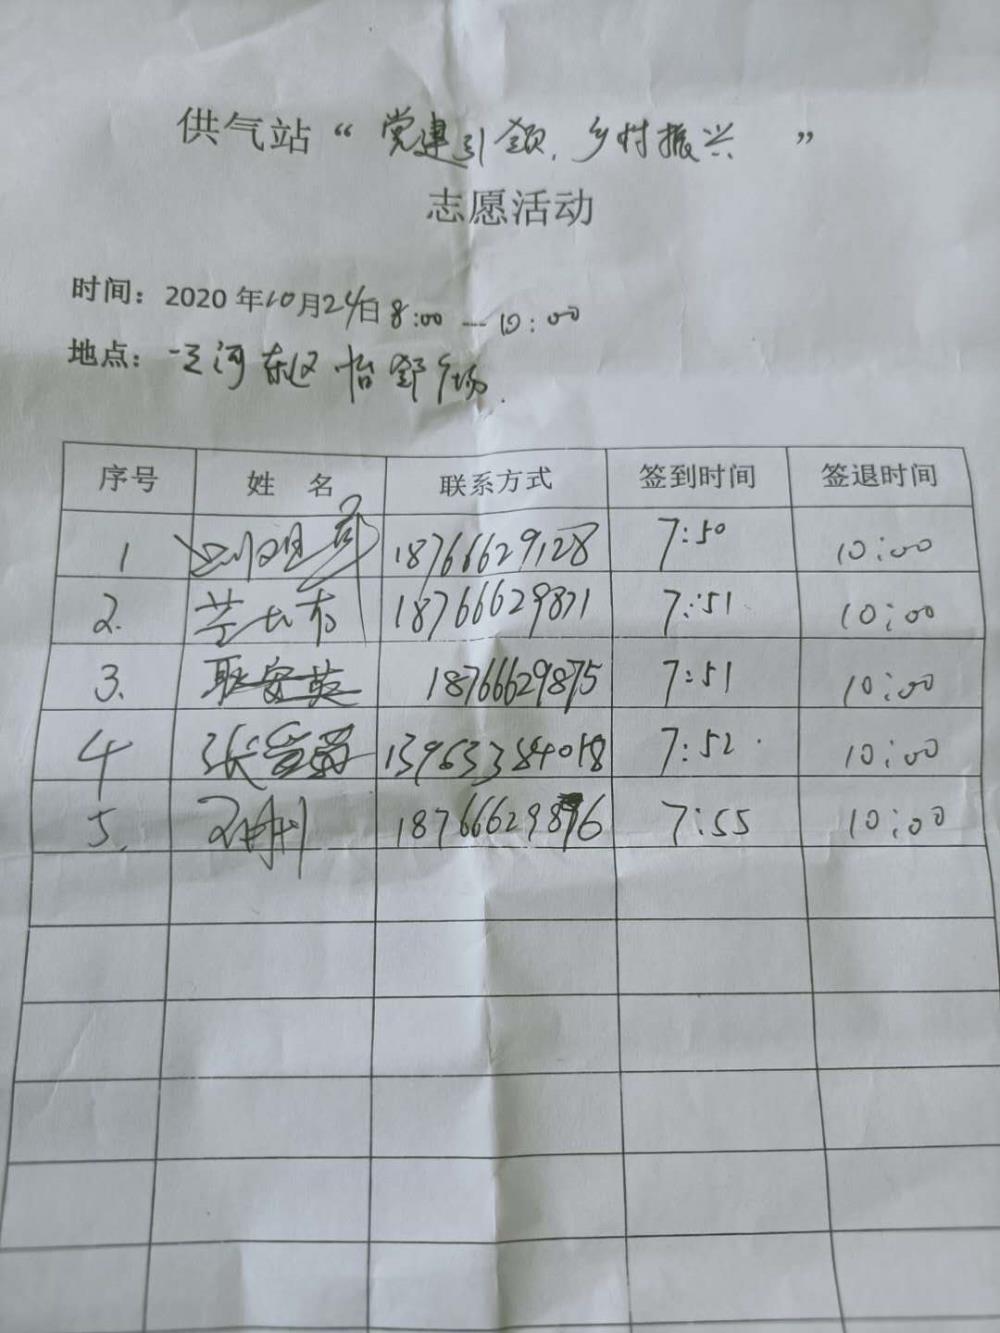 供气站“党建引领,乡村振兴”
志愿活动
时间：2020年10月24日8:00—10:00
地点：河东区怡舒广场.
序号 姓名 联系方式 签到时间 签退时间
1 18766629128 7:50 10:00
2. 18766629871 7:51 10:00
3. 耿安英 18766629875 7:51 10:00
4 张 13963384018 7:52 10:00
5. 187666298 6 7:55 10:00